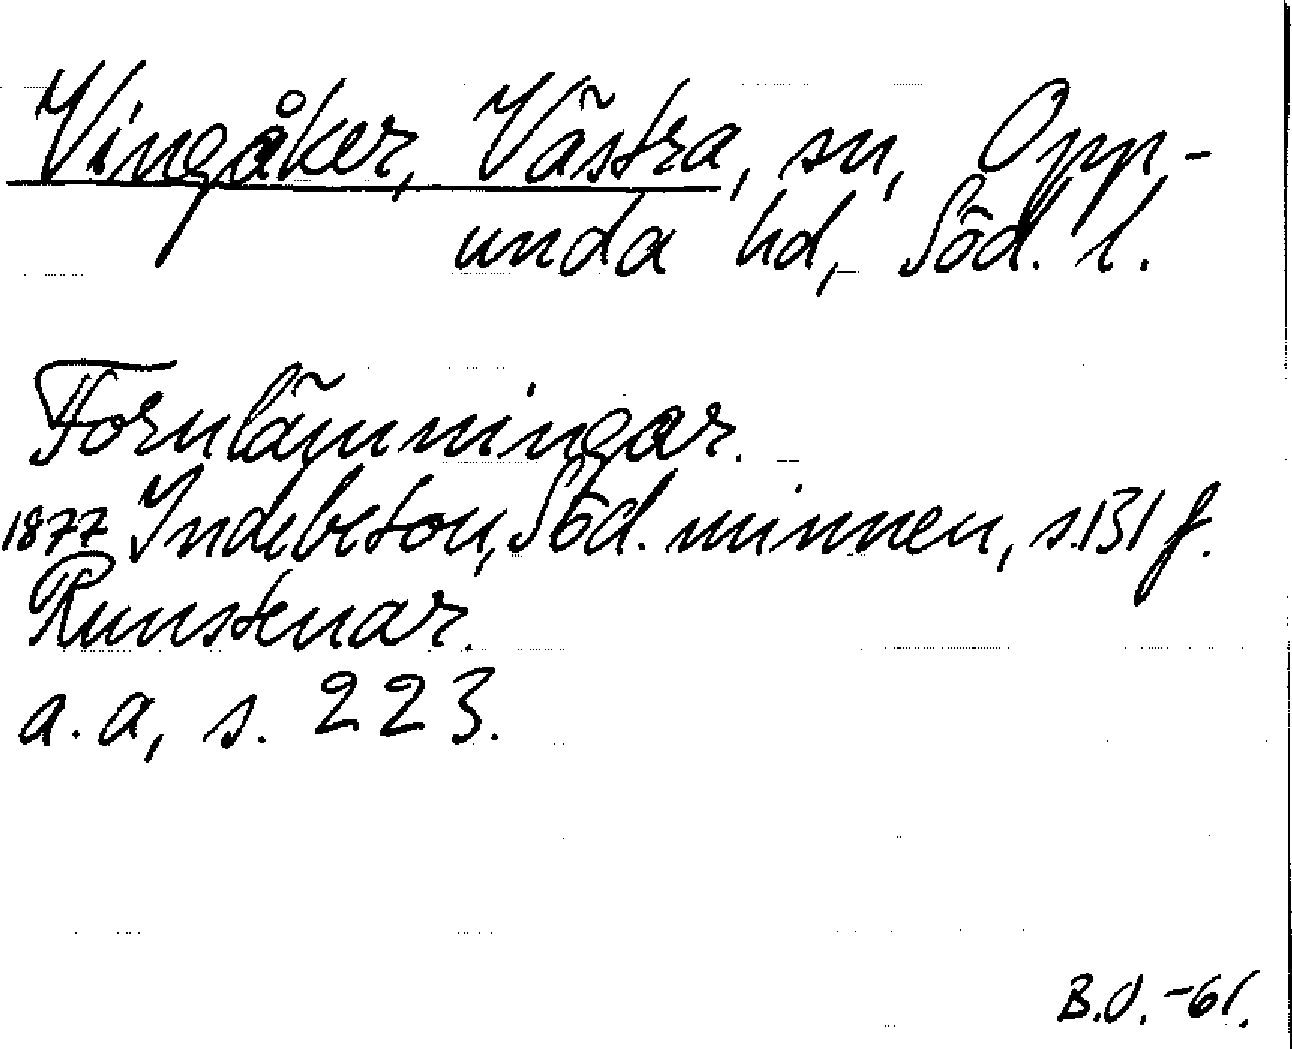 Vingåker, Västra, sn, Opp-
unda hd, Söd. l.
Fornlämningar.
1877 Indebetou, Söd. minnen, s. 131 f.
Runstenar.
a. a, s. 223.
B.O. -61.